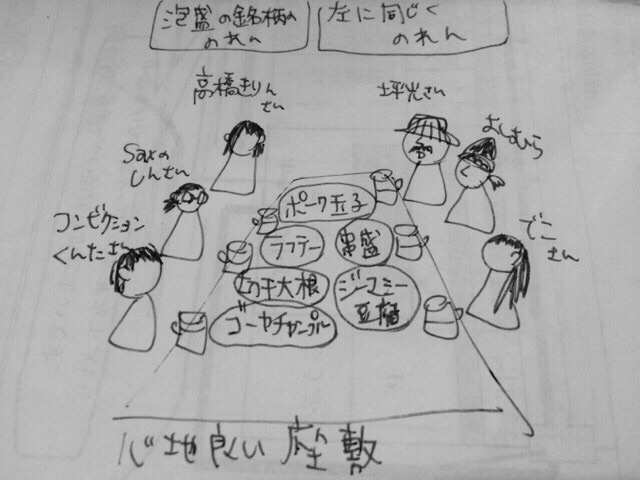 泡盛の銘柄の
のれん
左に同じく
のれん
高橋きりん
さん
坪光さん
Saxの
しんさん
よしむら
コンゼクション
くんたさん
でこ
さん
ポーク玉子
ラフテー
串盛
切干大根
ジーマミー
豆腐
ゴーヤチャンプル
心地良い座敷